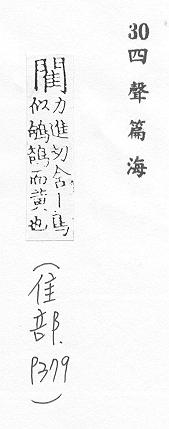 30四聲篇海
閵
力進切舍丨鳥
似鴝鵒而黃也
(隹部.P379)